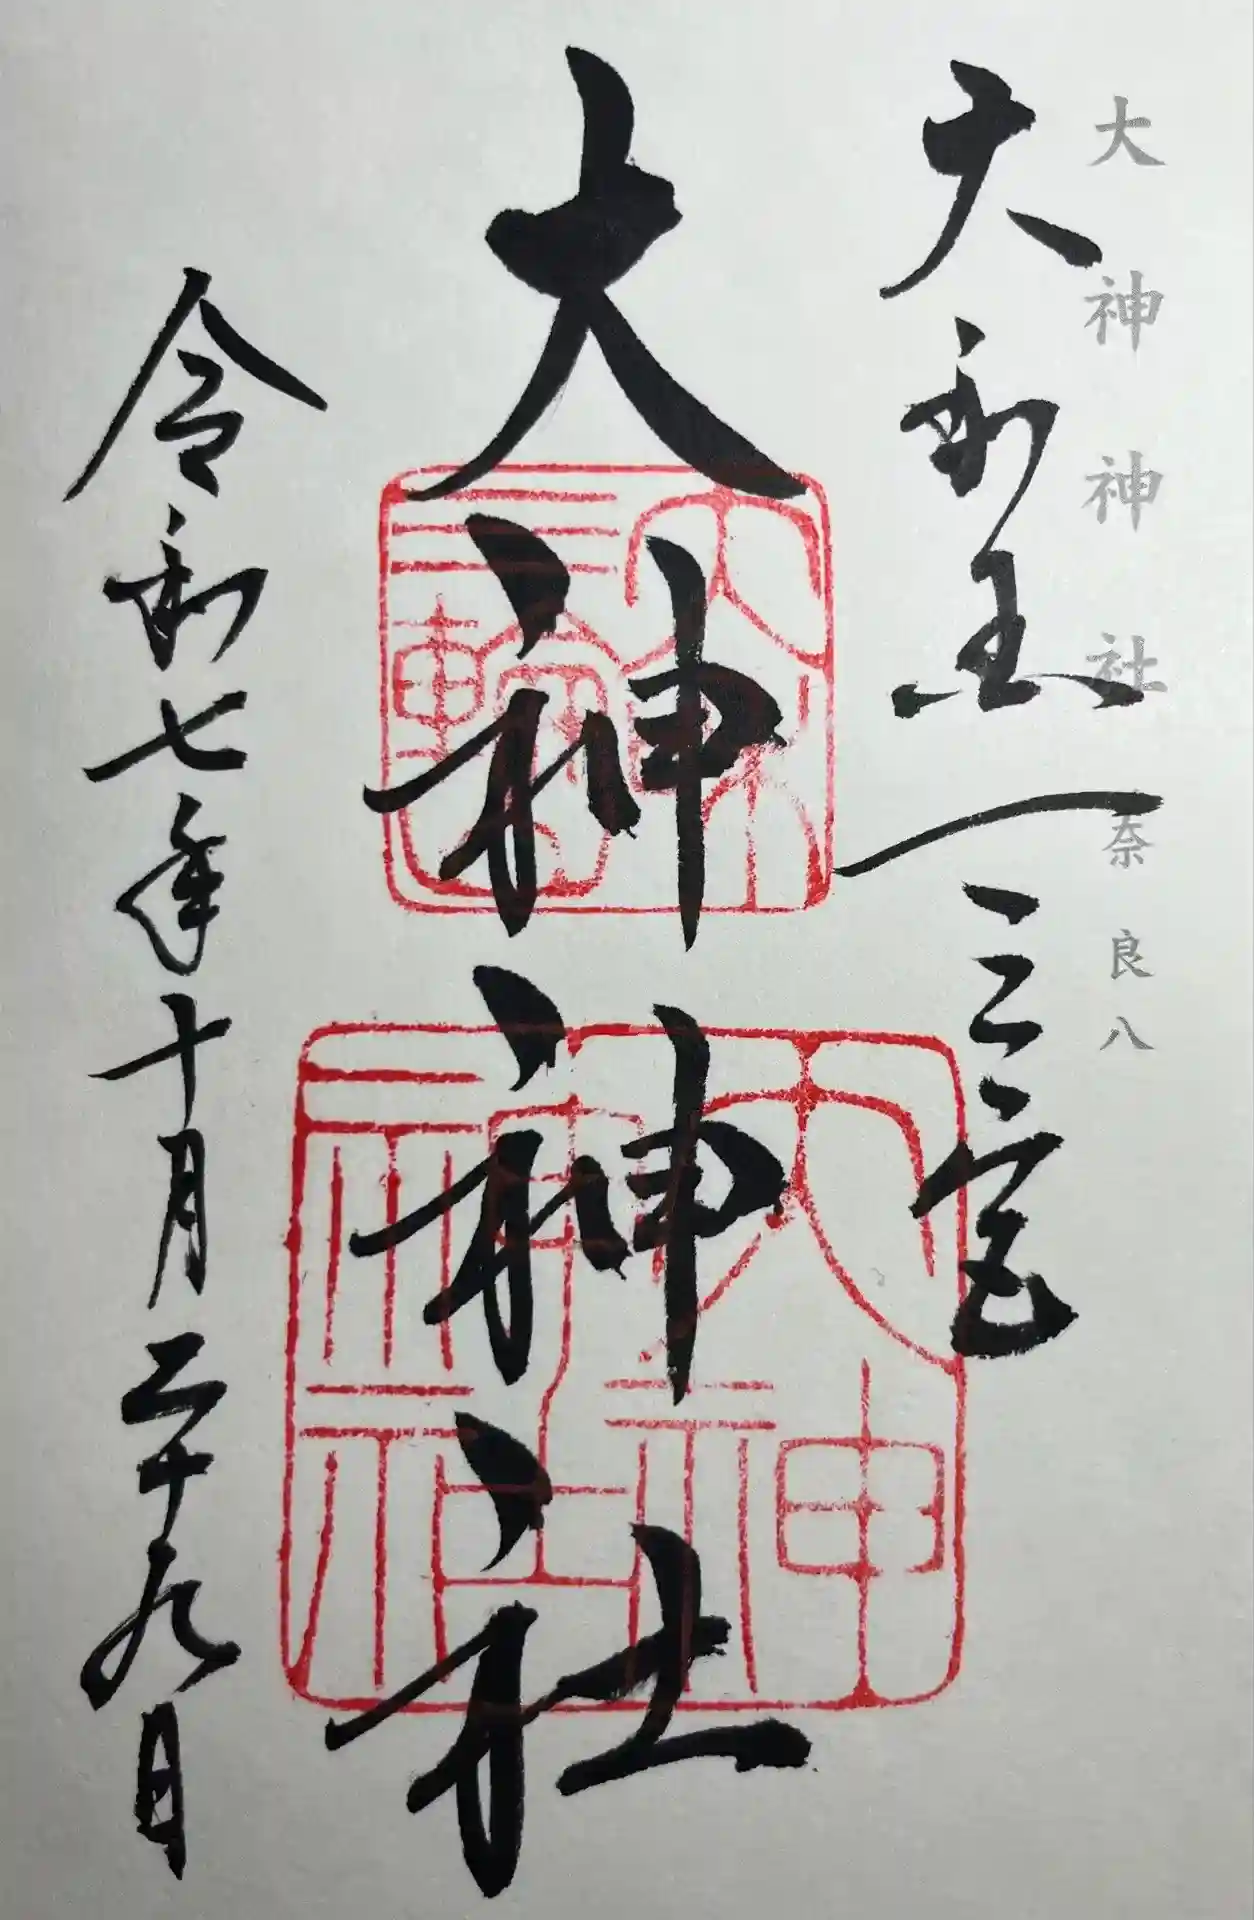 大神神社 奈良八
大和国一之宮
大神神社
大神神社
令和七年十月二十九日